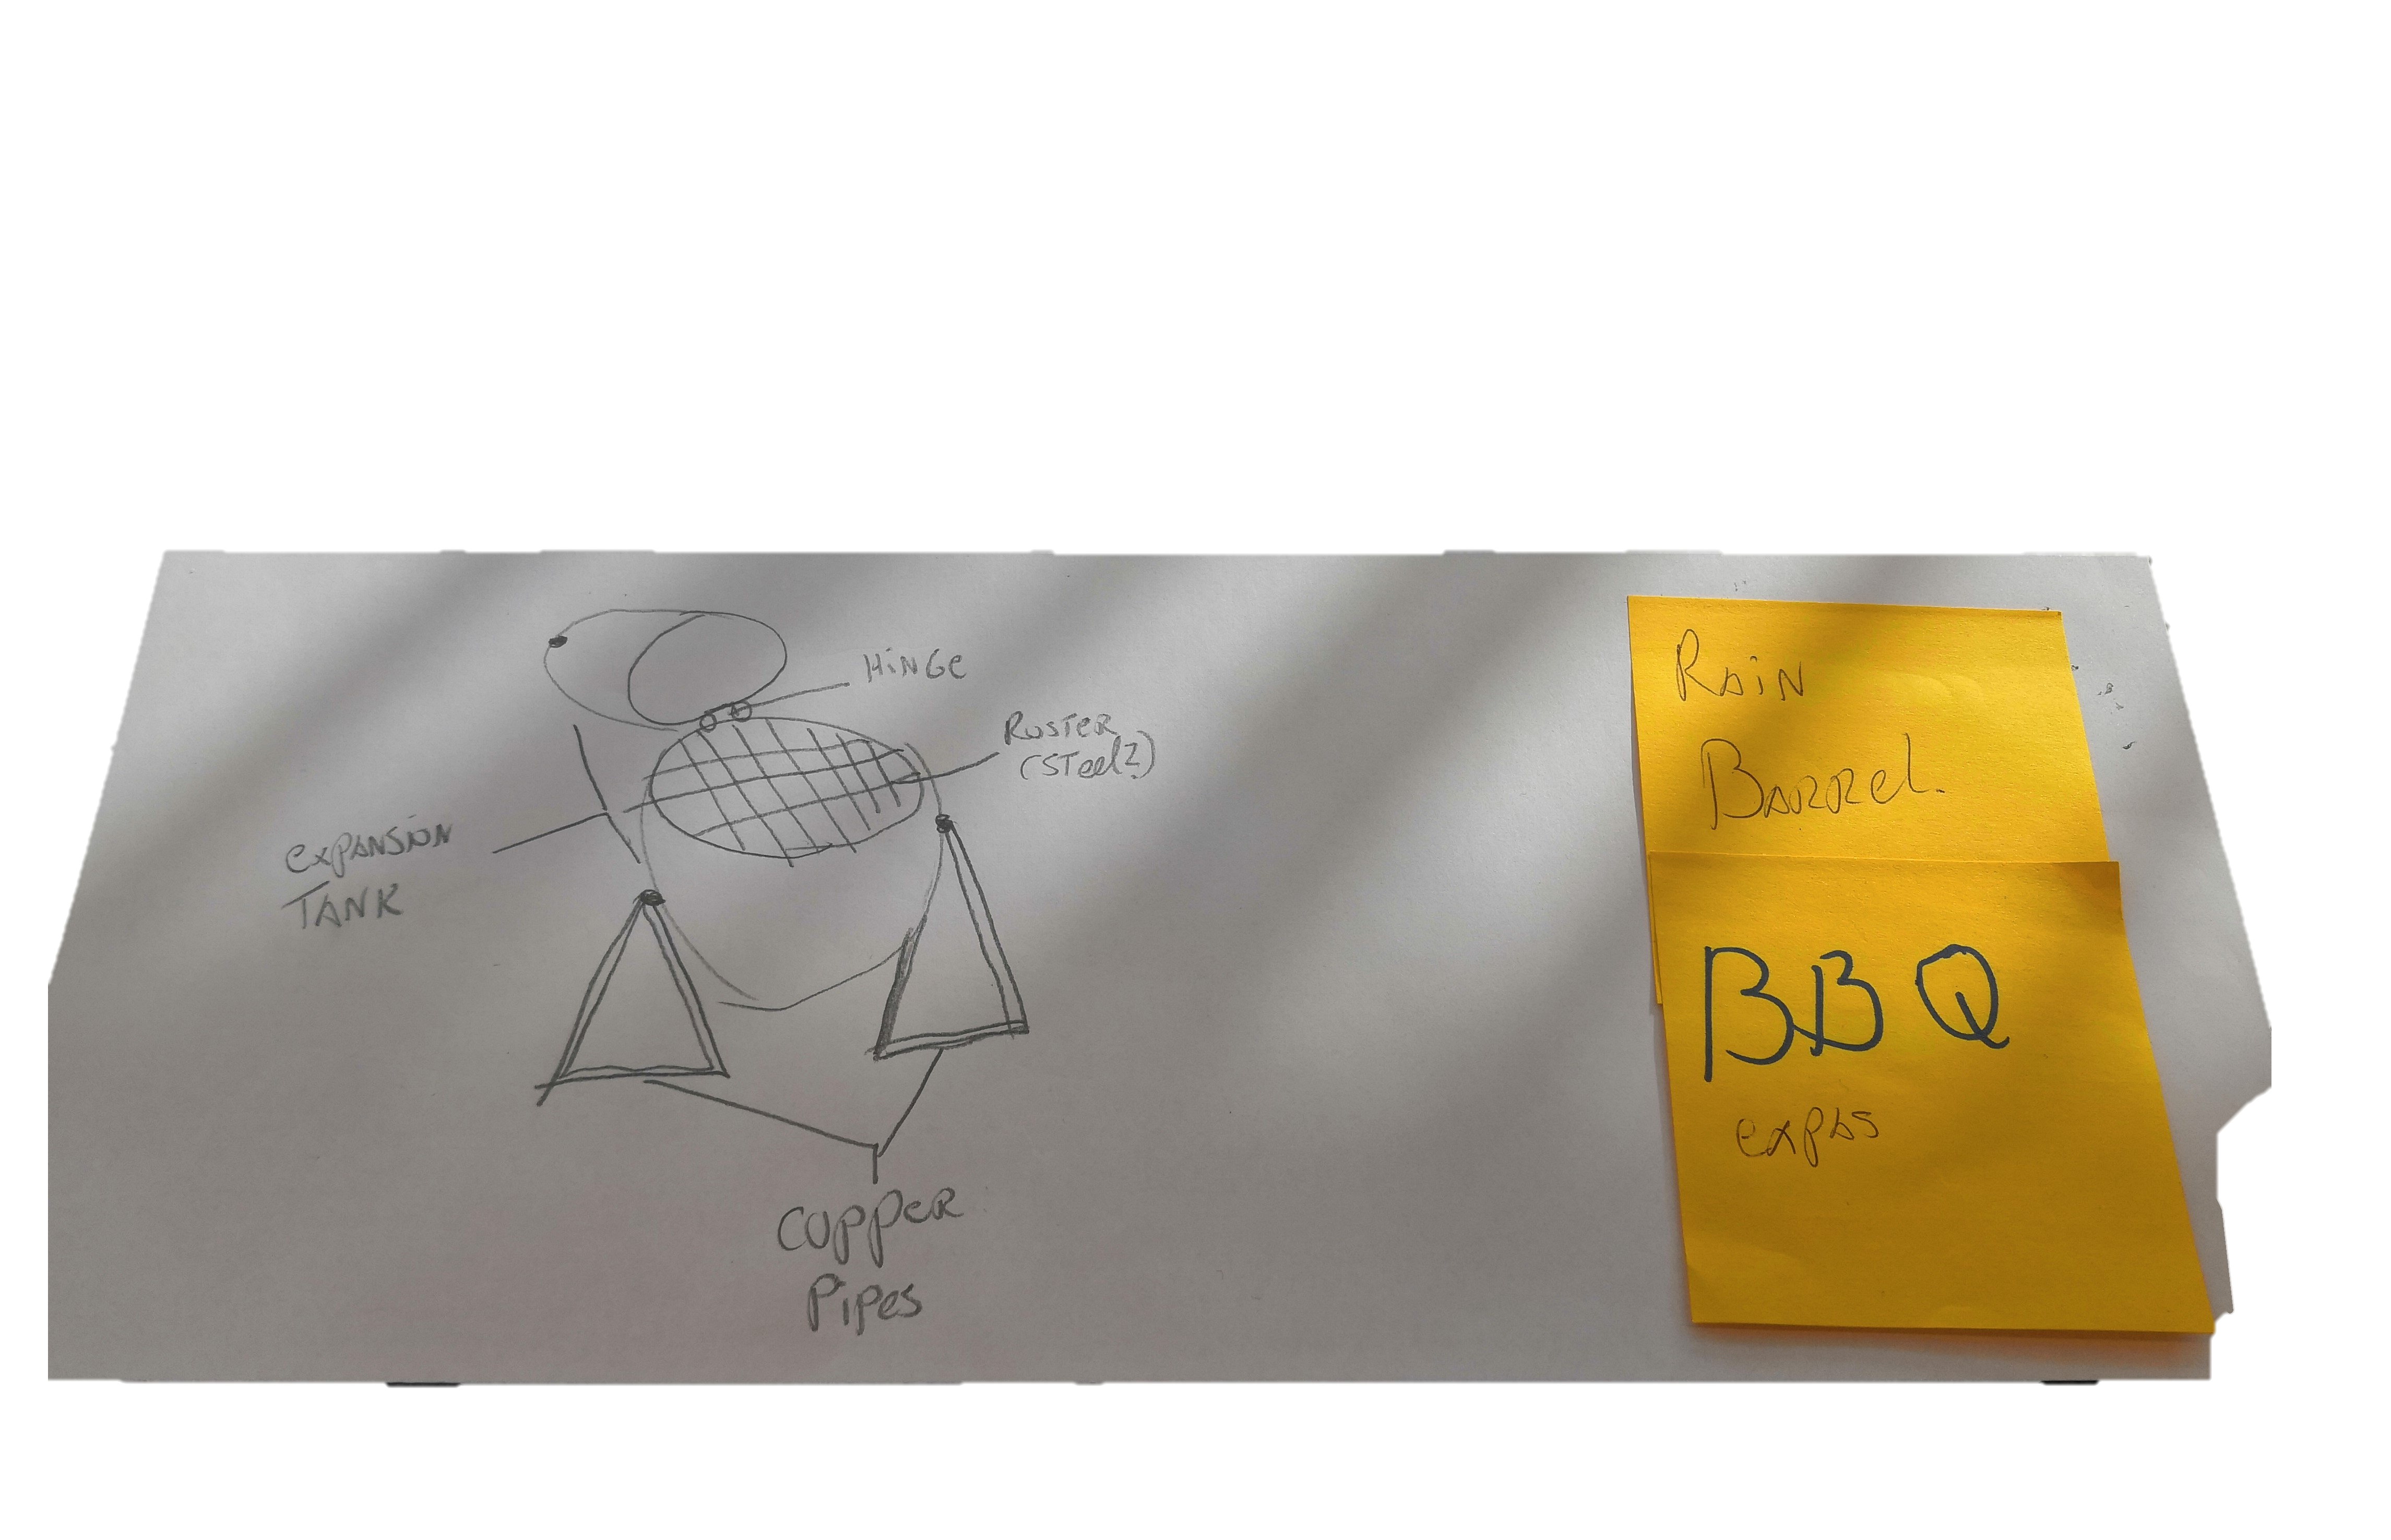 HiNGe
RUSTeR
(STeel?)
expANSiON
TANK
COPPeR
Pipes
RAiN
BARRel.
BBQ
expAS